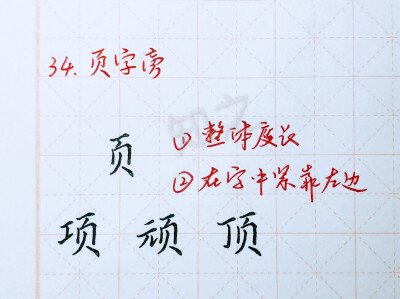 34. 页字旁
页 ① 整体瘦长
② 在字中紧靠左边
项 顽 顶